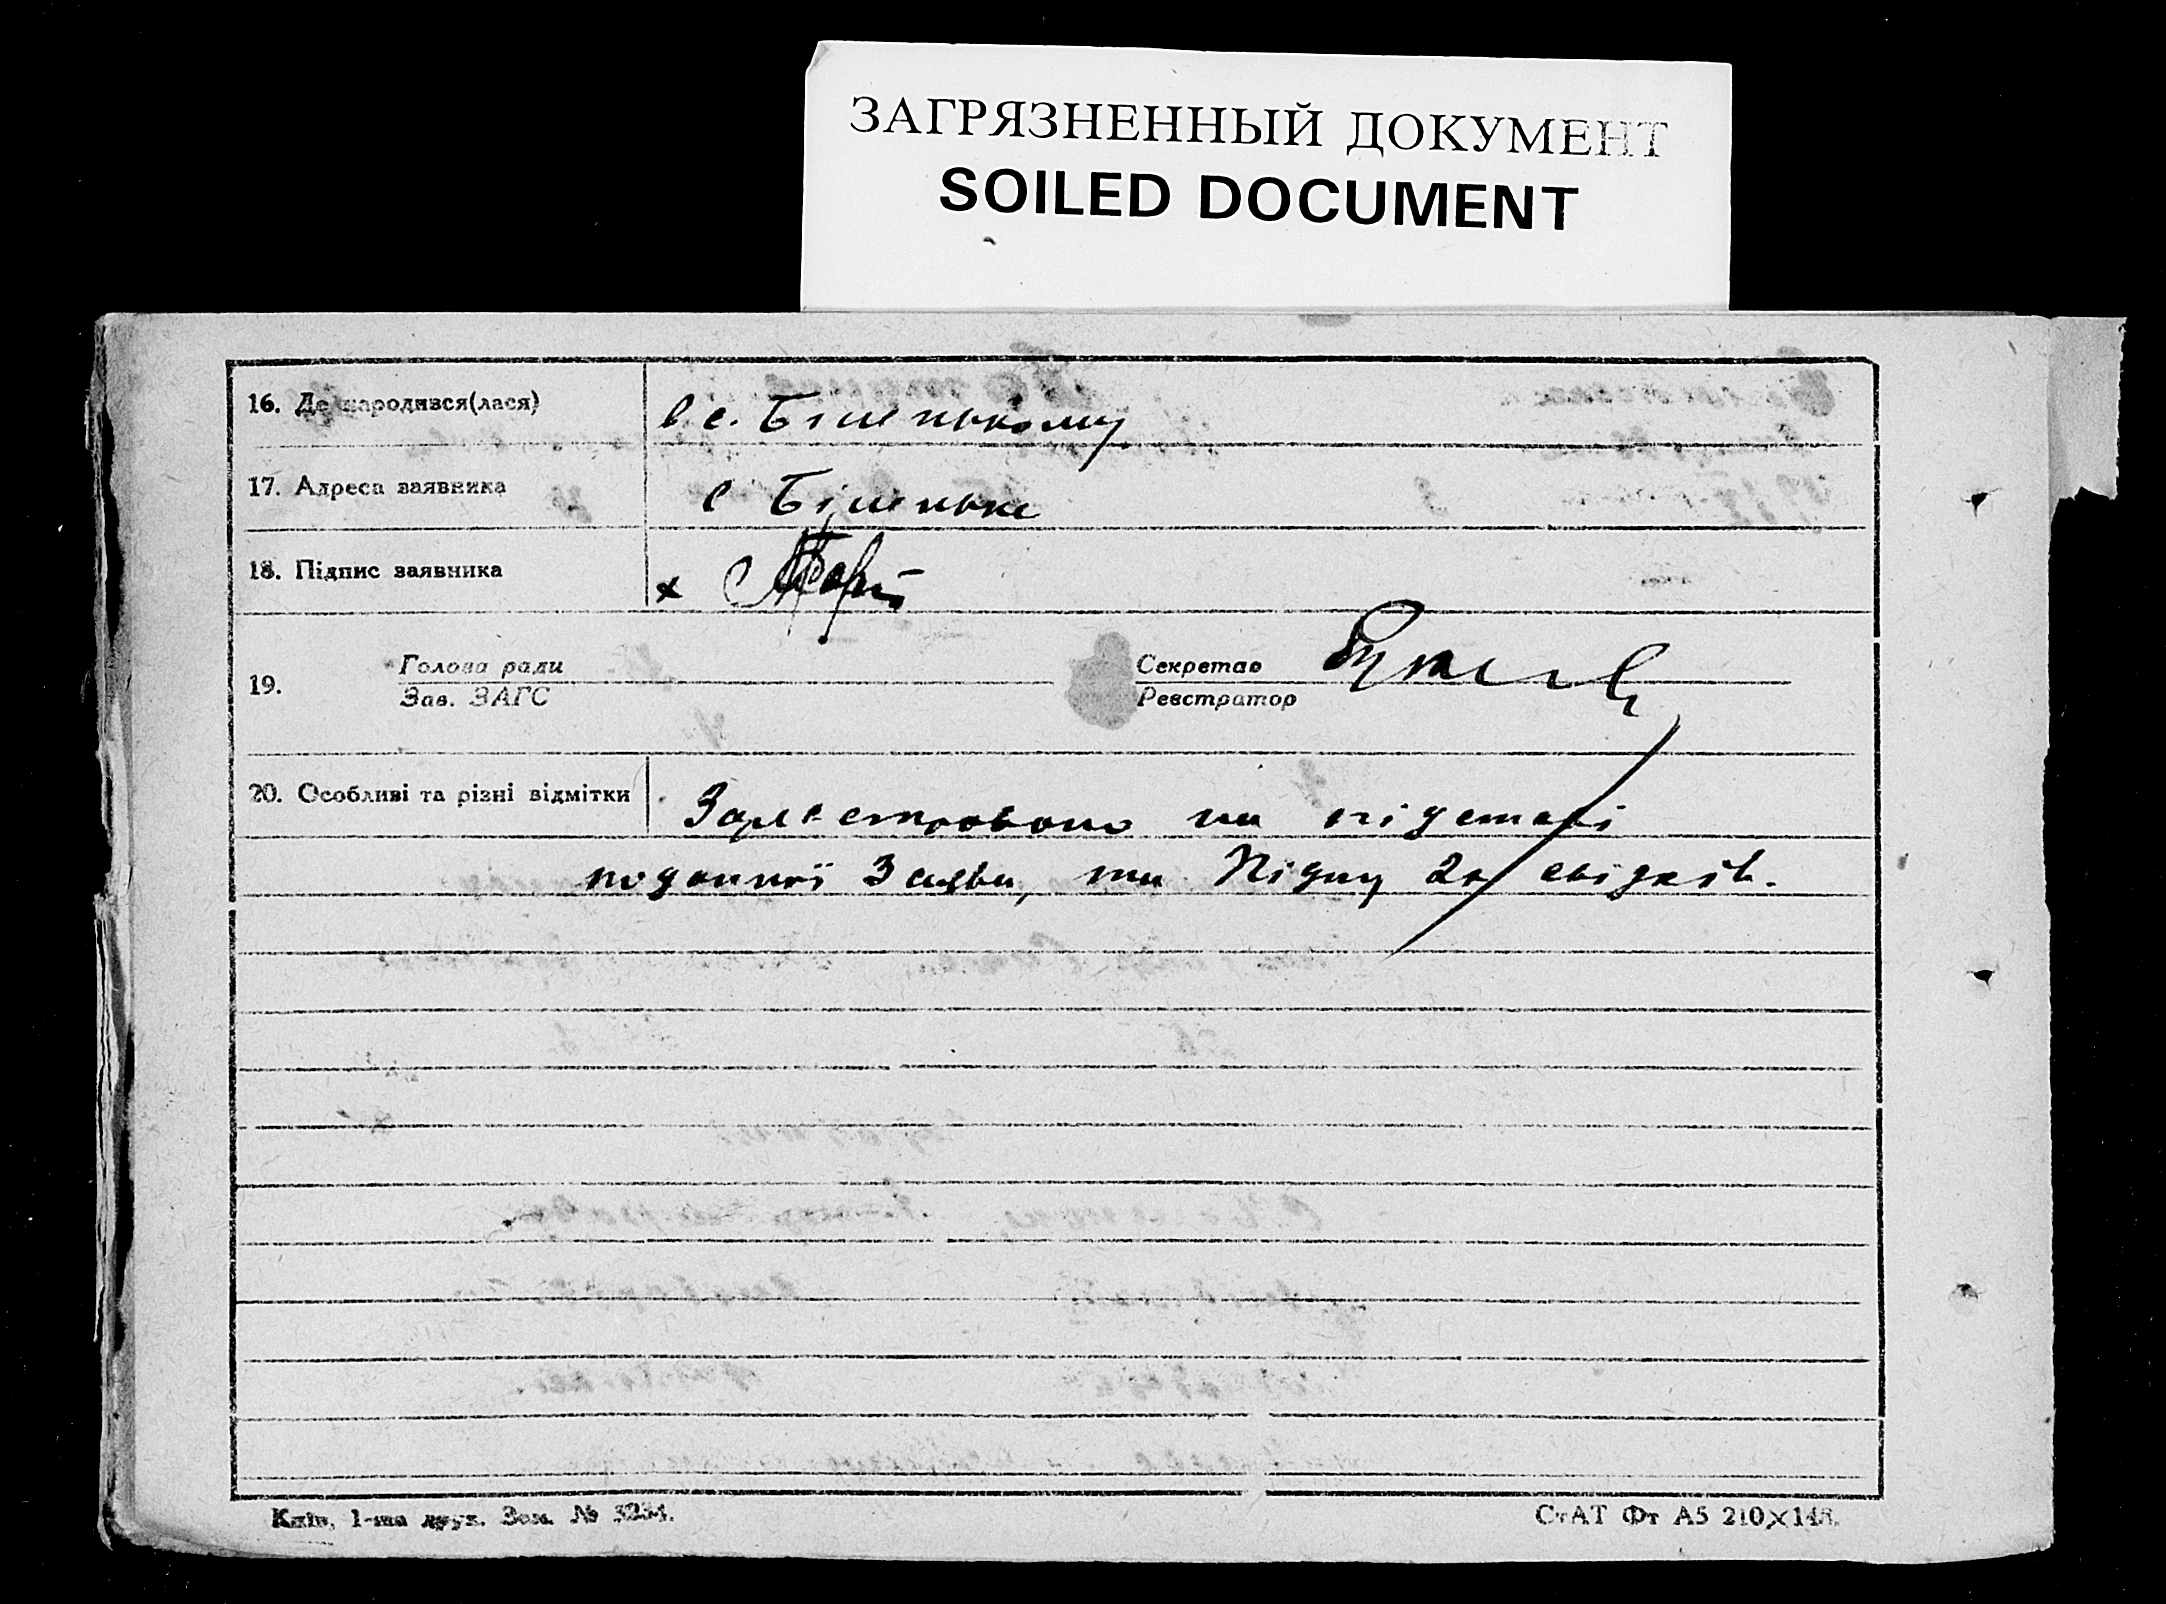 ЗАГРЯЗНЕННЫЙ ДОКУМЕНТ
SOILED DOCUMENT
16. Де народився(лася)
в с. Біленькому
17. Адреса заявника
с Біленьке
18. Підпис заявника
х
19.
Голова ради
Зав. ЗАГС
Секретар
Реєстратор
20. Особливі та різні відмітки
Зареєстровано на підставі
поданної Заяви, та Підпису 2х свідків.
Київ, 1-ша друк. Зам. № 3234.
СтАТ Фт А5 210×148.